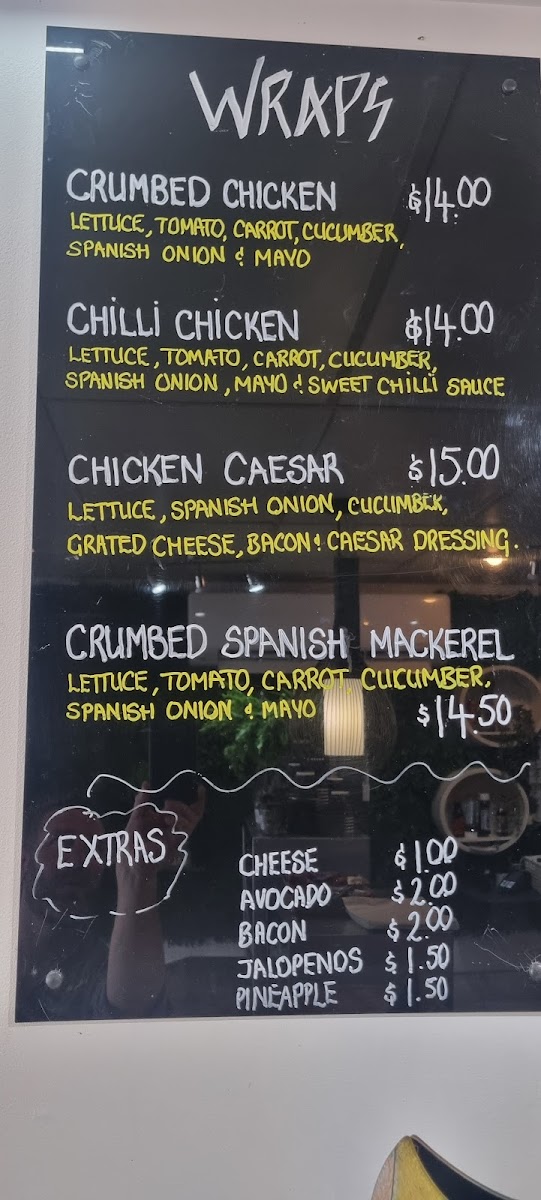 WRAPS
CRUMBED CHICKEN $14.00
LETTUCE, TOMATO, CARROT, CUCUMBER,
SPANISH ONION & MAYO
CHILLI CHICKEN $14.00
LETTUCE, TOMATO, CARROT, CUCUMBER,
SPANISH ONION, MAYO & SWEET CHILLI SAUCE
CHICKEN CAESAR $15.00
LETTUCE, SPANISH ONION, CUCUMBER,
GRATED CHEESE, BACON & CAESAR DRESSING.
CRUMBED SPANISH MACKEREL
LETTUCE, TOMATO, CARROT, CUCUMBER,
SPANISH ONION & MAYO $14.50
EXTRAS
CHEESE $1.00
AVOCADO $2.00
BACON $2.00
JALOPENOS $1.50
PINEAPPLE $1.50